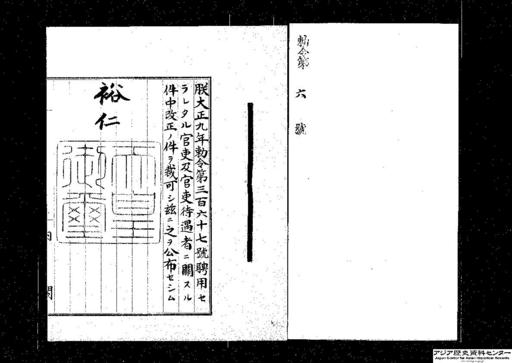 勅令第六號
朕大正九年勅令第三百六十七號聘用セ
ラレタル官吏及官吏待遇者ニ關スル
件中改正ノ件ヲ裁可シ茲ニ之ヲ公布セシム
裕仁
天皇御璽
內閣
アジア歴史資料センター
Japan Center for Asian Historical Records